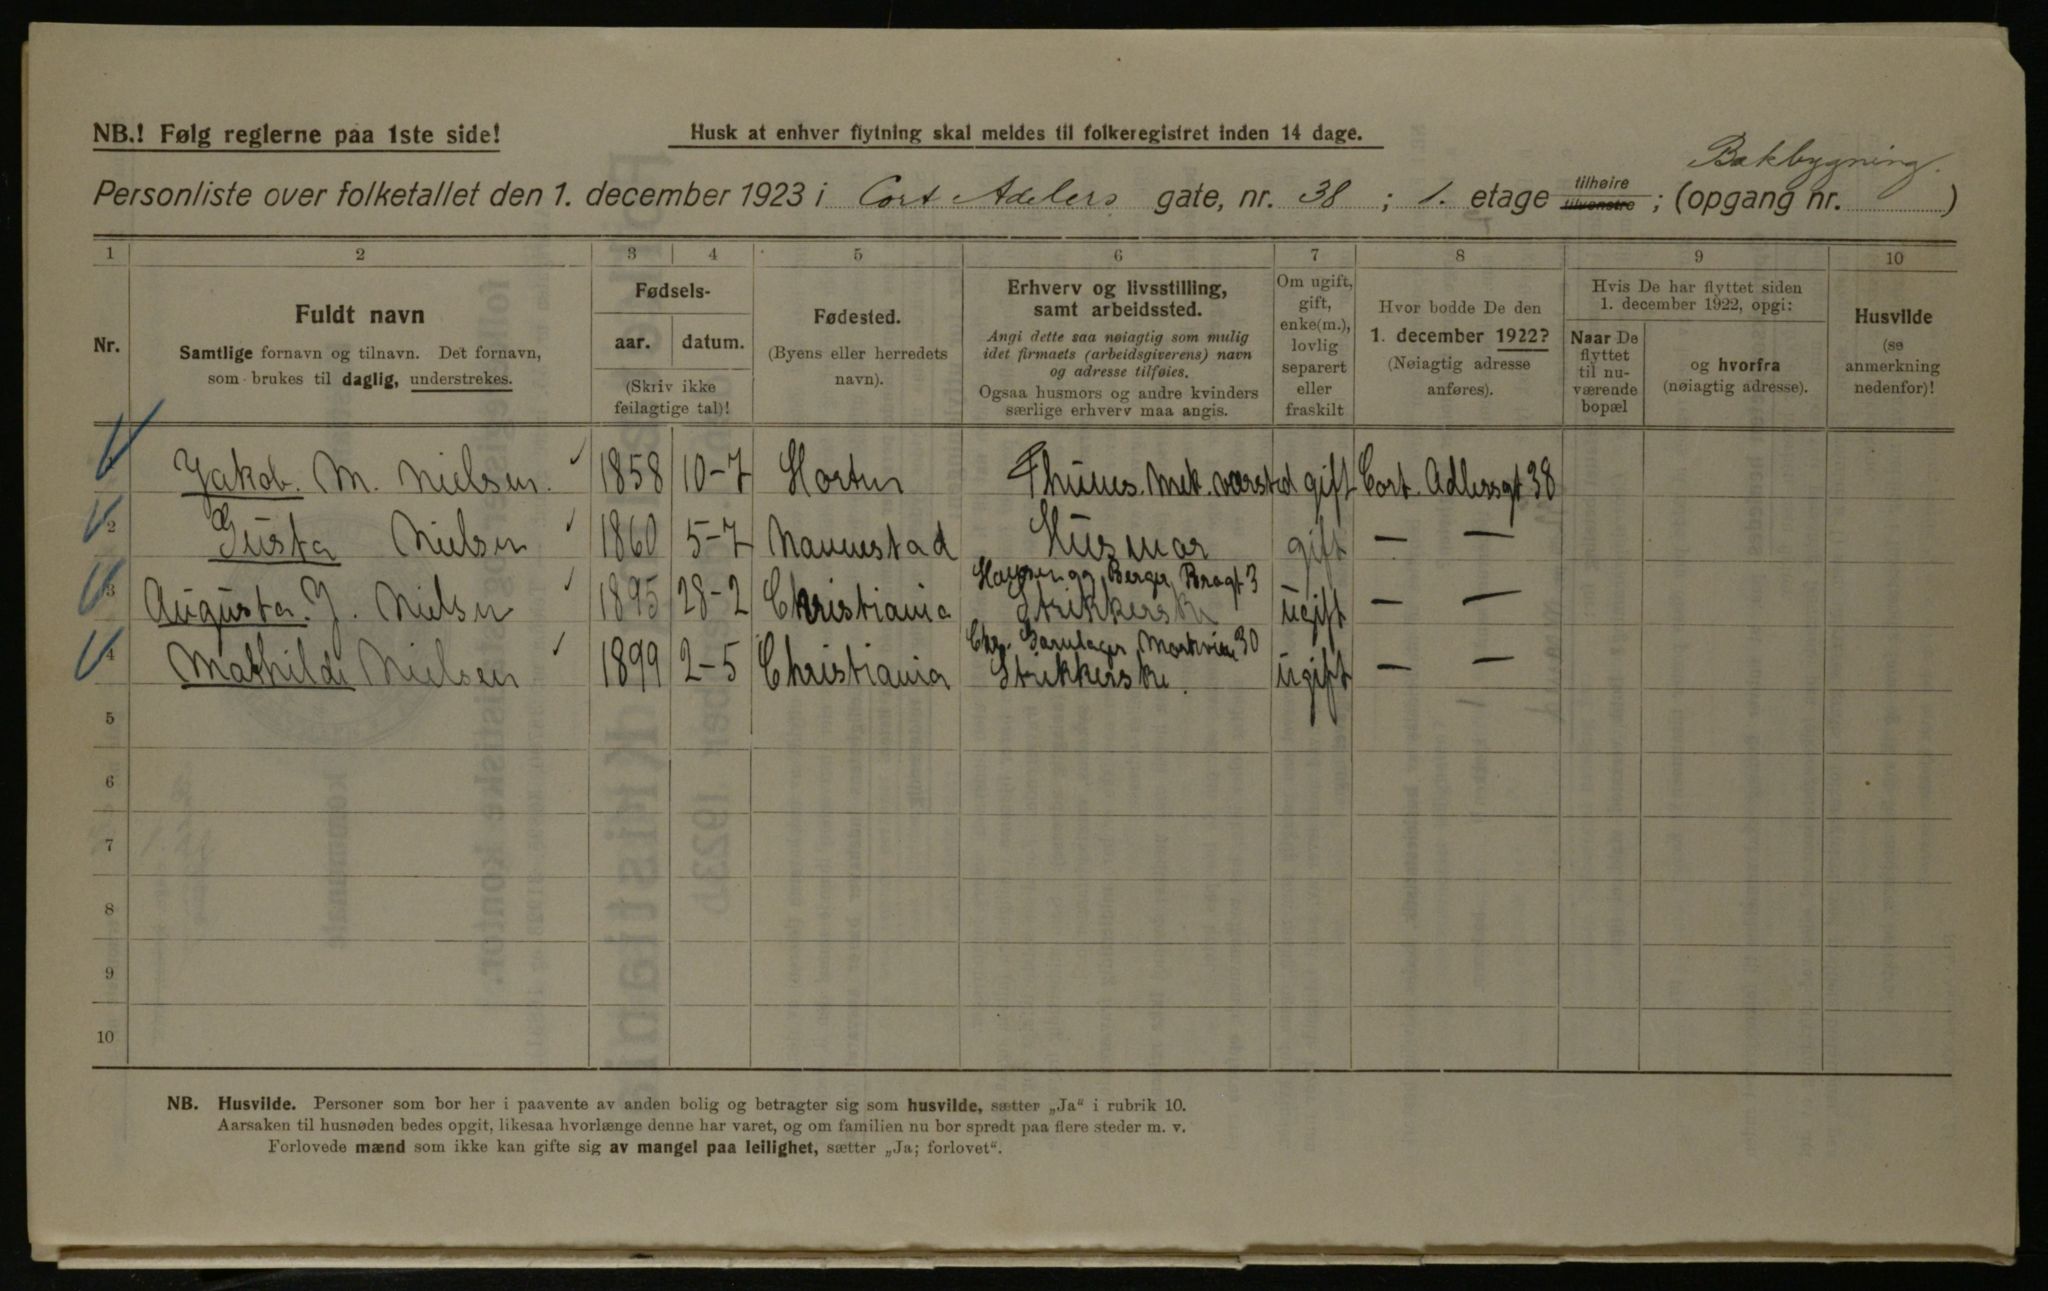 NB.! Følg reglerne paa 1ste side!
Husk at enhver flytning skal meldes til folkeregistret inden 14 dage.
Bakbygning.
Personliste over folketallet den 1. december 1923 i Cort Adelers gate, nr. 38 ; 1. etage tilhøire tilvenstre ; (opgang nr. )
1 2 3 4 5 6 7 8 9 10
Nr.
Fuldt navn
Samtlige fornavn og tilnavn. Det fornavn,
som brukes til daglig, understrekes.
Fødsels-
aar. datum.
(Skriv ikke
feilagtige tal)!
Fødested.
(Byens eller herredets
navn).
Erhverv og livsstilling,
samt arbeidssted.
Angi dette saa nøiagtig som mulig
idet firmaets (arbeidsgiverens) navn
og adresse tilføies.
Ogsaa husmors og andre kvinders
særlige erhverv maa angis.
Om ugift,
gift,
enke(m.),
lovlig
separert
eller
fraskilt
Hvor bodde De den
1. december 1922?
(Nøiagtig adresse
anføres).
Hvis De har flyttet siden
1. december 1922, opgi:
Naar De
flyttet
til nu-
værende
bopæl
og hvorfra
(nøiagtig adresse).
Husvilde
(se
anmerkning
nedenfor)!
1 Jakob. M. Nielsen. 1858 10-7 Horten Thunes. Mek. værsted gift Cort. Adlersgt 38
2 Gusta Nielsen 1860 5-7 Nannestad Husmor gift — —
Berger Bragt 3
3 Augusta. J. Nielsen 1895 28-2 Christiania Strikkerske ugift — —
Chr. Garnlager Markvien 30
4 Mathilde Nielsen 1899 2-5 Christiania Strikkerske. ugift — —
5
6
7
8
9
10
NB. Husvilde. Personer som bor her i paavente av anden bolig og betragter sig som husvilde, sætter „Ja“ i rubrik 10.
Aarsaken til husnøden bedes opgit, likesaa hvorlænge denne har varet, og om familien nu bor spredt paa flere steder m. v.
Forlovede mænd som ikke kan gifte sig av mangel paa leilighet, sætter „Ja; forlovet“.